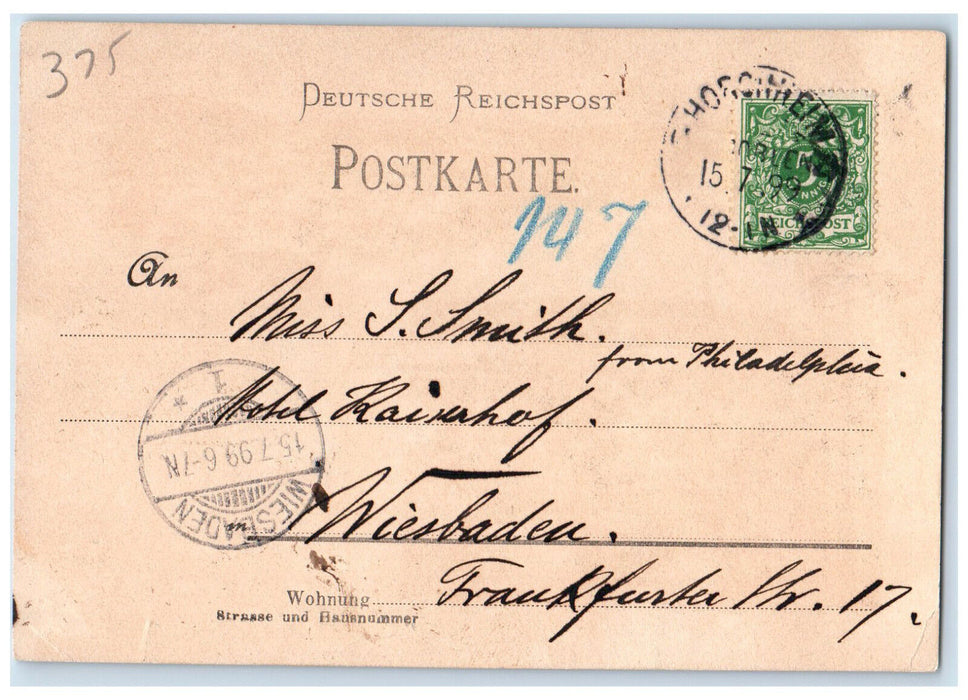 375
DEUTSCHE REICHSPOST
POSTKARTE.
15.7.99
12-1N
REICHSPOST
147
An
Miss S. Smith.
from Philadelphia.
Hotel Kaiserhof.
1
15.7.99 6-7N
WIESBADEN
in Wiesbaden.
Wohnung
Frankfurter Str. 17.
Strasse und Hausnummer